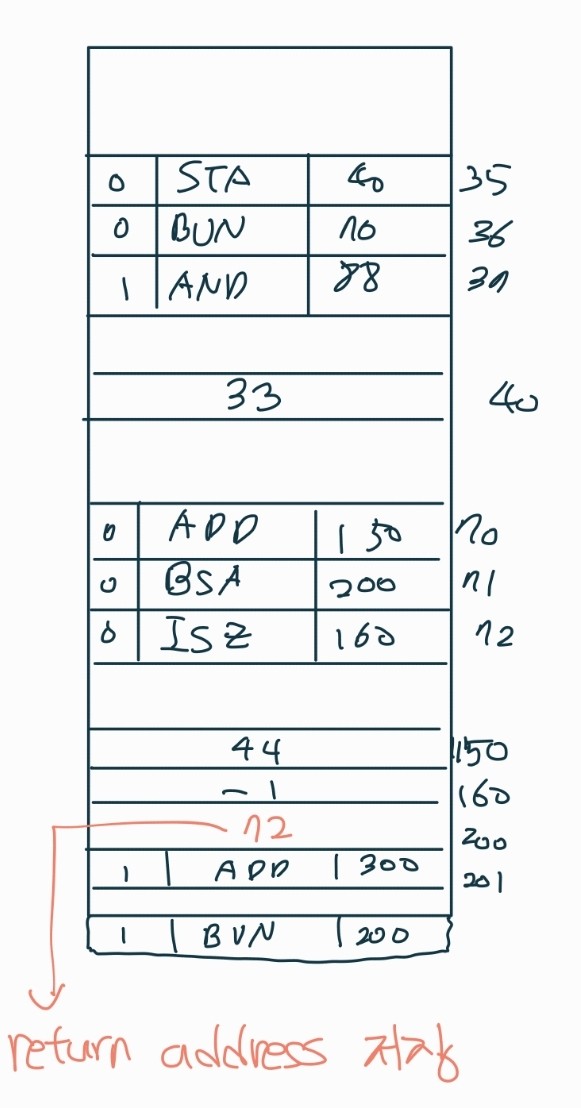 0 STA 40 35
0 BUN 70 36
1 AND 88 37
33 40
0 ADD 150 70
0 BSA 200 71
0 ISZ 160 72
44 150
-1 160
72 200
1 ADD 300 201
1 BUN 200
return address 저장